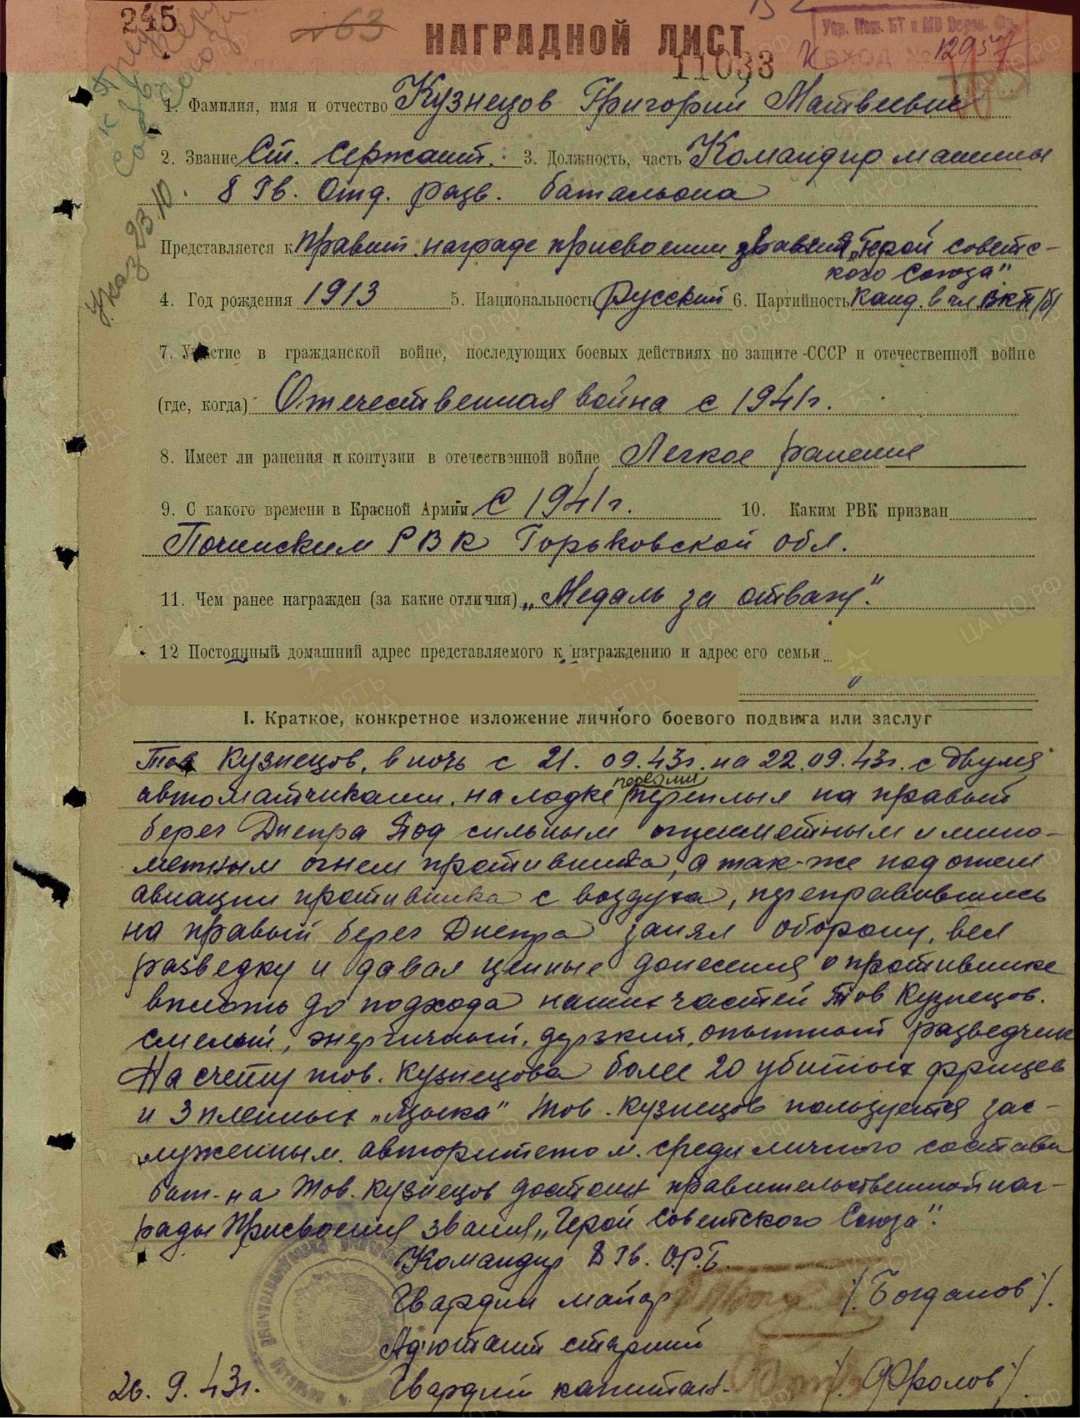 245
63
НАГРАДНОЙ ЛИСТ
11033
Упр. Ком. БТ и МВ
ВХОД №
1295
к Герою
Советского
Союза
указ 23.10.
1. Фамилия, имя и отчество Кузнецов Григорий Матвеевич
2. Звание Ст. Сержант. 3. Должность, часть Командир машины
8 Гв. Отд. разв. батальона
Представляется к правит. награде присвоении звания „Герой советс-
кого Союза"
4. Год рождения 1913 5. Национальность русский 6. Партийность канд. в чл ВКП/б/
7. Участие в гражданской войне, последующих боевых действиях по защите СССР и отечественной войне
(где, когда) Отечественная война с 1941г.
8. Имеет ли ранения и контузии в отечественной войне Легкое ранение
9. С какого времени в Красной Армии С 1941г. 10. Каким РВК призван
Починским РВК Горьковской обл.
11. Чем ранее награжден (за какие отличия) „Медаль за отвагу".
12 Постоянный домашний адрес представляемого к награждению и адрес его семьи
I. Краткое, конкретное изложение личного боевого подвига или заслуг
Тов Кузнецов, в ночь с 21. 09.43г. на 22.09.43г. с двумя
первым
автоматчиками, на лодке переплыл на правый
берег Днепра Под сильным огнеметным и мино-
метным огнем противника, а так-же под огнем
авиации противника с воздуха, переправившись
на правый берег Днепра занял оборону, вел
разведку и давал ценные донесения о противнике
вплоть до подхода наших частей Тов Кузнецов.
смелый, энергичный, дерзкий, опытный разведчик
На счету тов. Кузнецова более 20 убитых фрицев
и 3 пленных „языка" Тов. Кузнецов пользуется зас-
луженным авторитетом среди личного состава
бат-на Тов. Кузнецов достоин правительственной наг-
рады Присвоения звания „Герой Советского Союза".
Командир 8 Гв. О.Р.Б.
Гвардии майор /Богданов/.
Ад'ютант старший
26. 9. 43г. Гвардии капитан. /Фролов/.